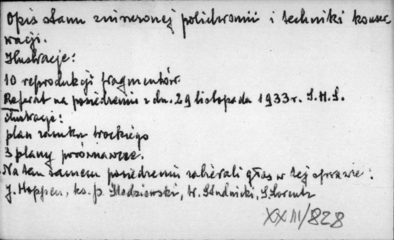 Opis stanu zniszonej polichromii i techniki konser
wacji.
Ilustracje:
10 reprodukcji fragmentów.
Referat na posiedzeniu z dn. 29 listopada 1933 r. S.H.S.
ilustracje:
plan zamku trockiego
3 plany porównawcze.
Na tem samem posiedzeniu zabierali głos w tej sprawie:
J. Hoppen, ks. p. Śledziewski, W. Studnicki, S. Lorentz
XXIII/828